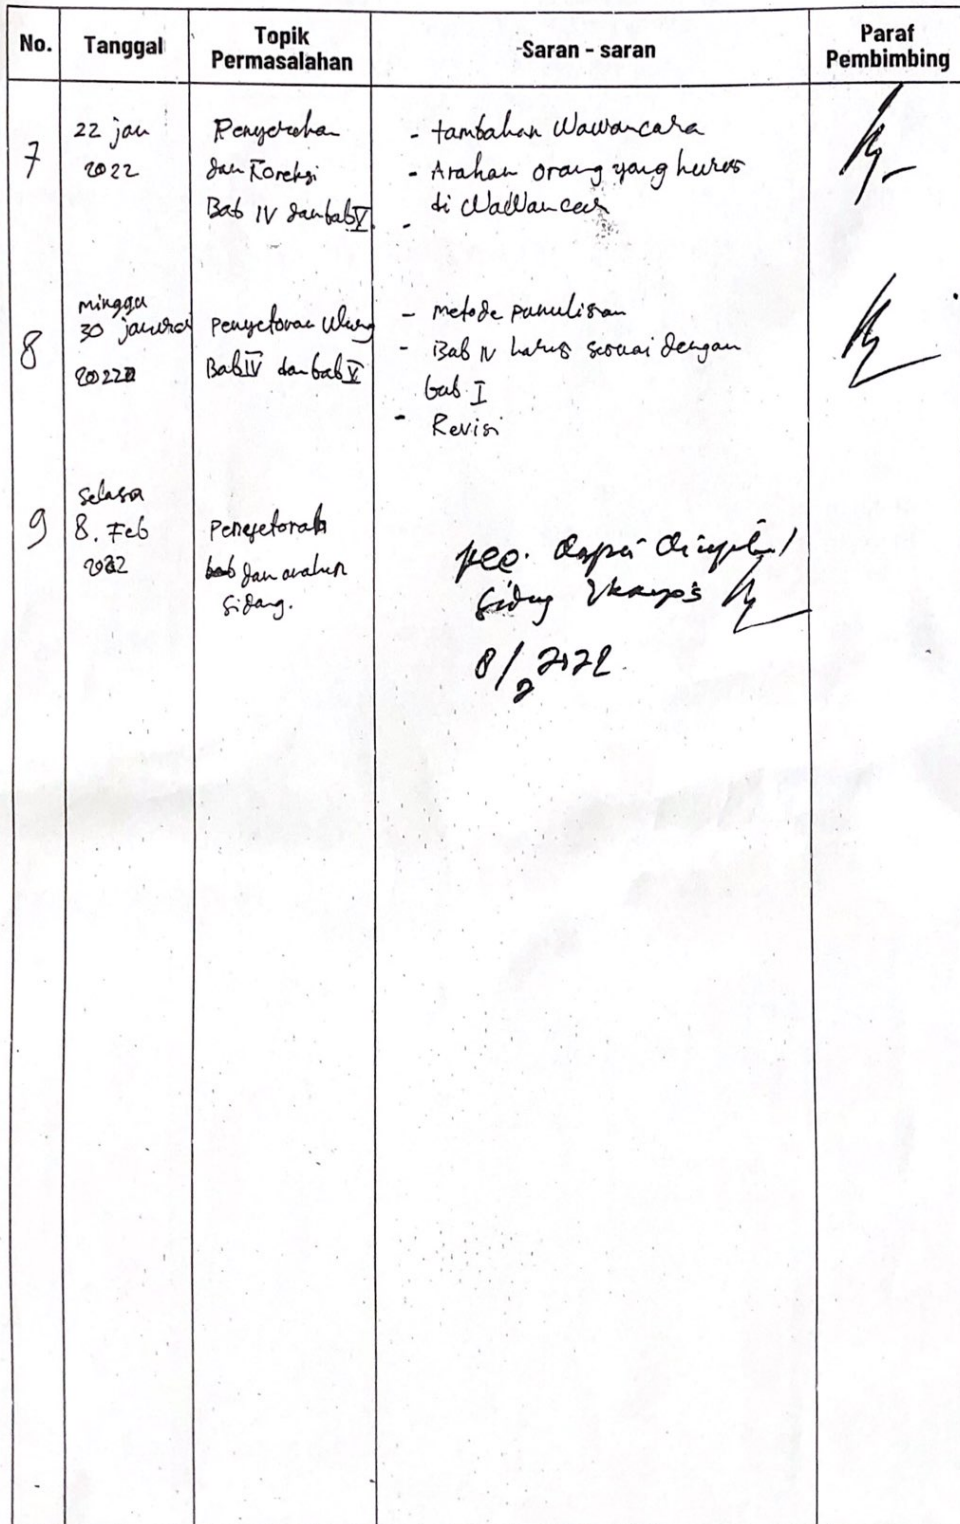 No. Tanggal Topik Permasalahan Saran - saran Paraf Pembimbing
7
22 jan
2022
Penyerahan
dan Koreksi
Bab IV dan bab V
- tambahan Wawancara
- Arahan orang yang harus
di Wawancara
-
8
minggu
30 januari
2022
Penyetoran Ulang
Bab IV dan bab V
- metode panulisan
- Bab IV harus sesuai dengan
bab I
- Revisi
9
Selasa
8. Feb
2022
Penyetorah
bab dan arahan
Sidang.
Acc. dapat
Sidang
8/2 2022.